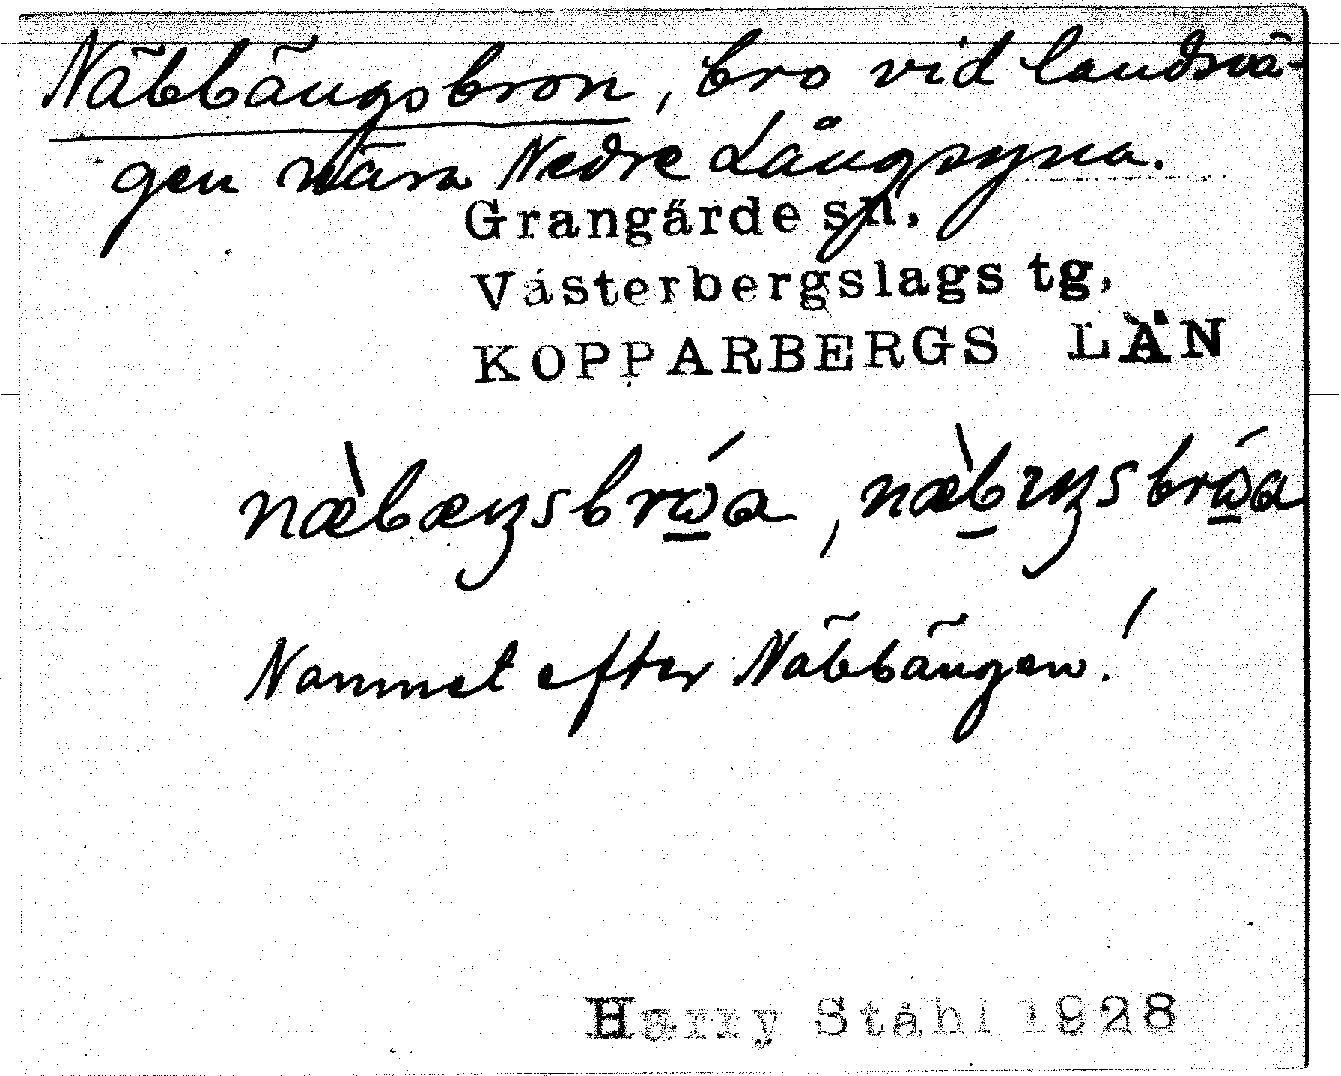 Näbbängsbron, bro vid landsvä-
gen nära Nedre Långsyna.
Grangärde sn,
Västerbergslags tg,
KOPPARBERGS LÄN
Namnet efter Näbbängen!
Harry Ståhl 1928